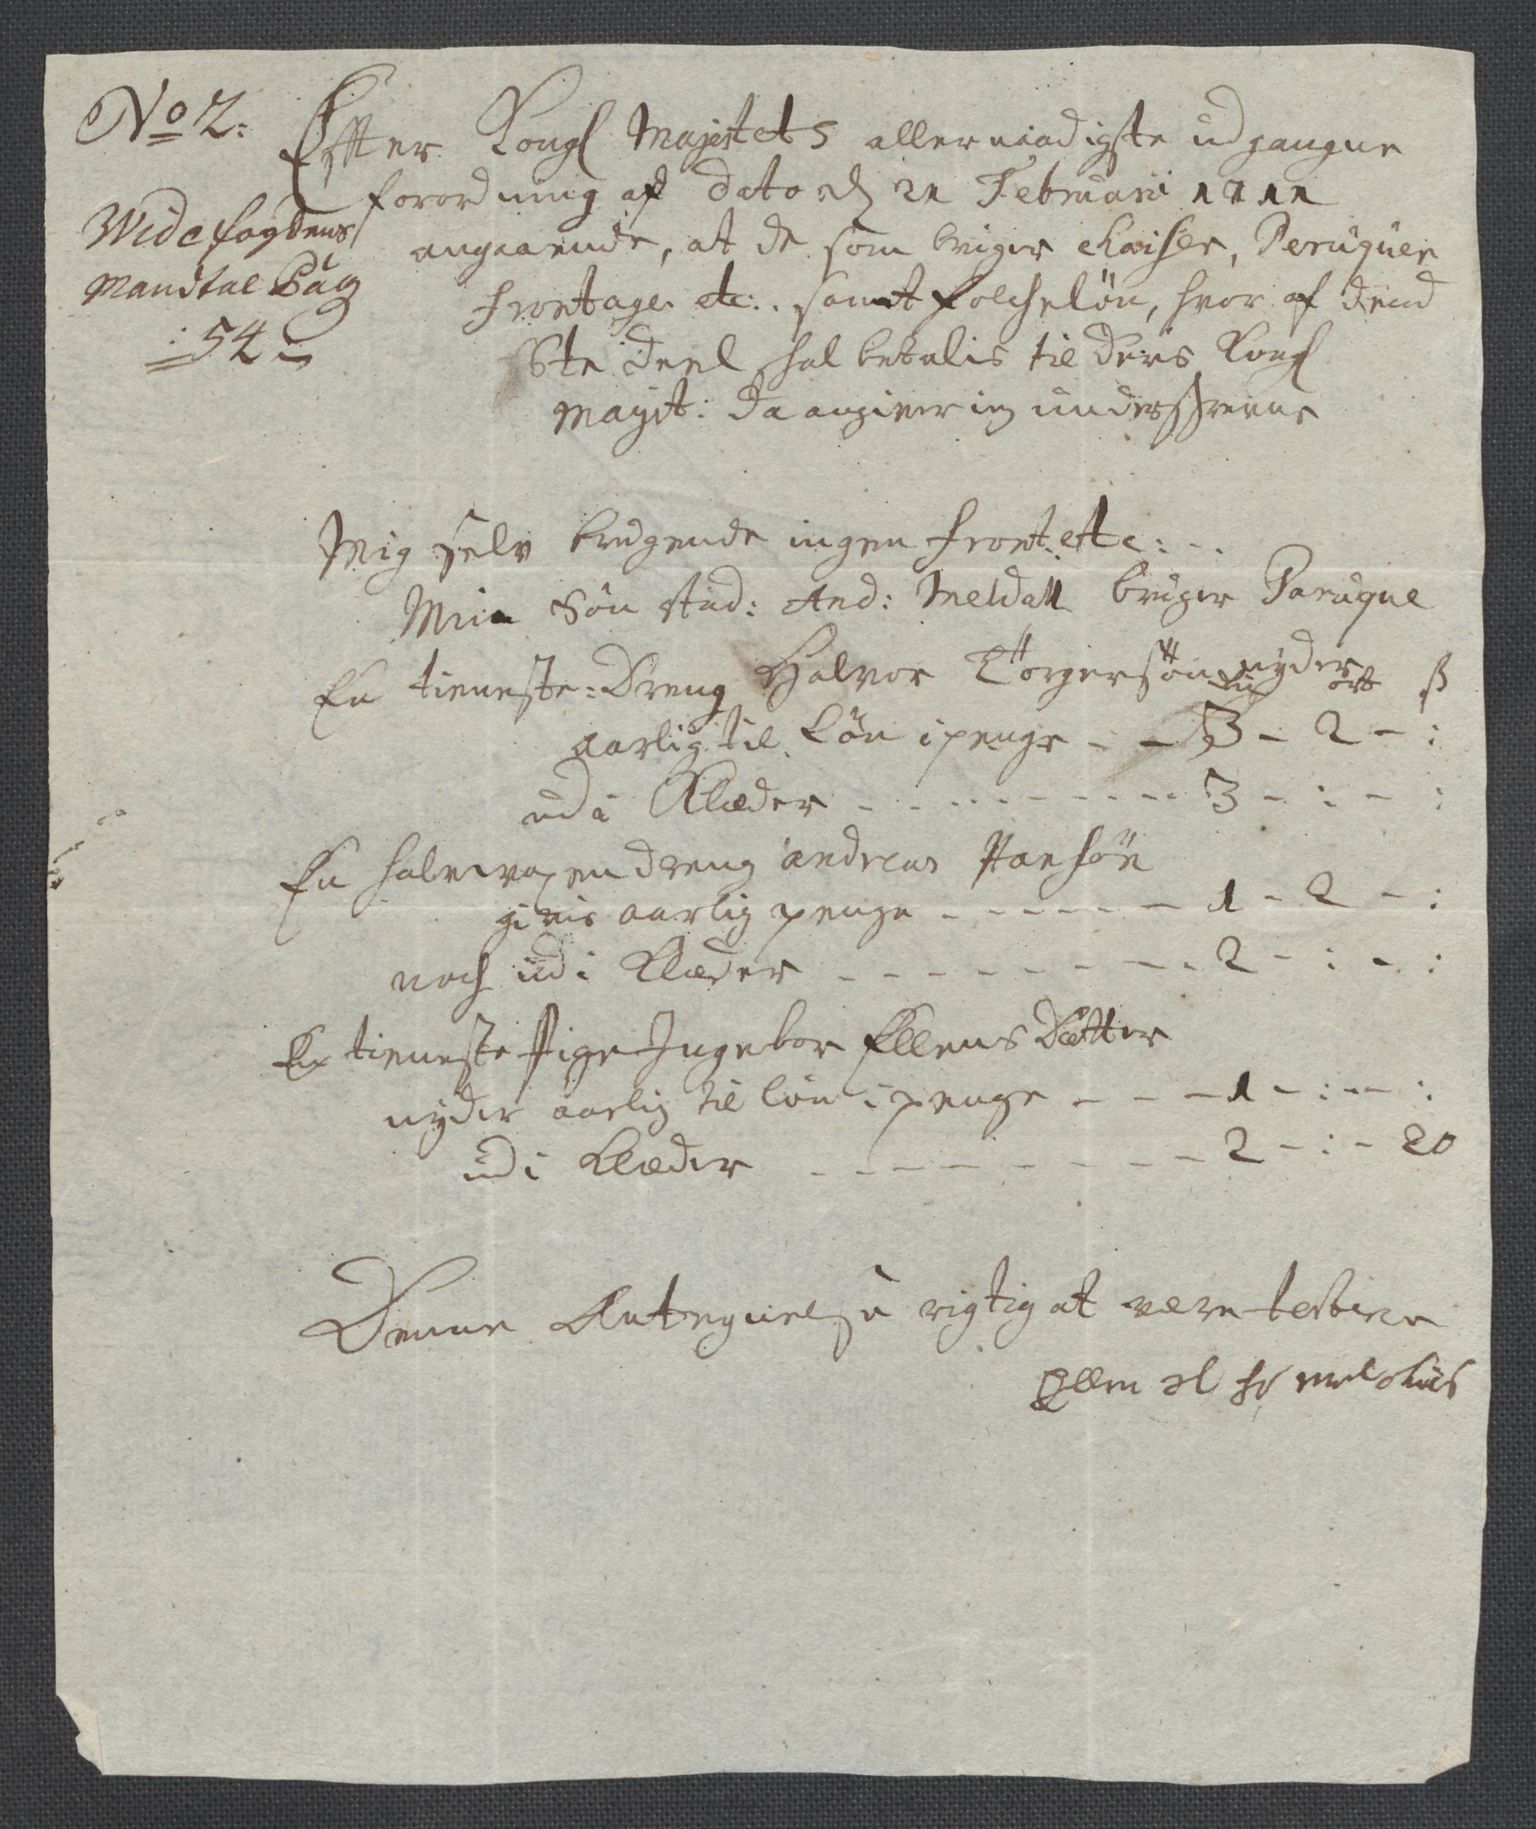 No 2:
Wide fogdens
Mandtal Pag
:54
Effter Kongl Majestets allernaadigste udgangne
forordning af dato d 21 Februari 1711
angaaende, at de som bruger chaiser, Peruquer
frontage etc: samt folcheløn, hvor af dend
6te deel skal betalis til Deris Kongl
Mayst: da angiver ieg underskrevne
Mig selv brugende ingen front. etc:
Min Søn stud: And: Meldall bruger Paruque
En tieneste-Dreng Halvor Törgersøn nyder
Rd ort ß
aarlig til Løn i penge - - 3 - 2 - :
ud i Klæder - - - - - - 3 - : - :
En halvvoxen dreng Andreas Hansøn
givis aarlig penge - - - - - - 1 - 2 - :
noch ud i Klæder - - - - - - 2 - : - :
En tieneste Pige Ingebor Ellens Datter
nyder aarlig til løn i penge - - - 1 - : - :
ud i Klæder - - - - - - 2 - : - 20
Denne Antegnelse rigtig at være testerer
Ellen sl hr melchius